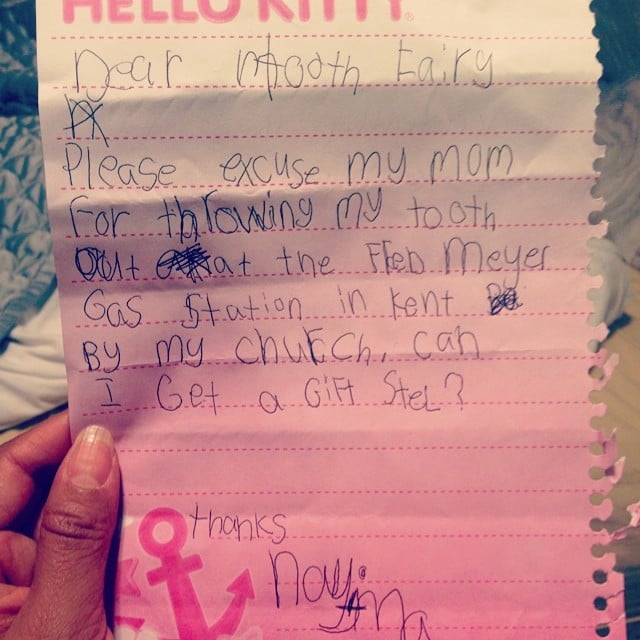 HELLO KITTY®
Dear tooth Fairy
Please excuse my mom
For throwing my tooth
Out at the Fred Meyer
Gas Station in kent
By my church, can
I Get a Gift Stel?
thanks